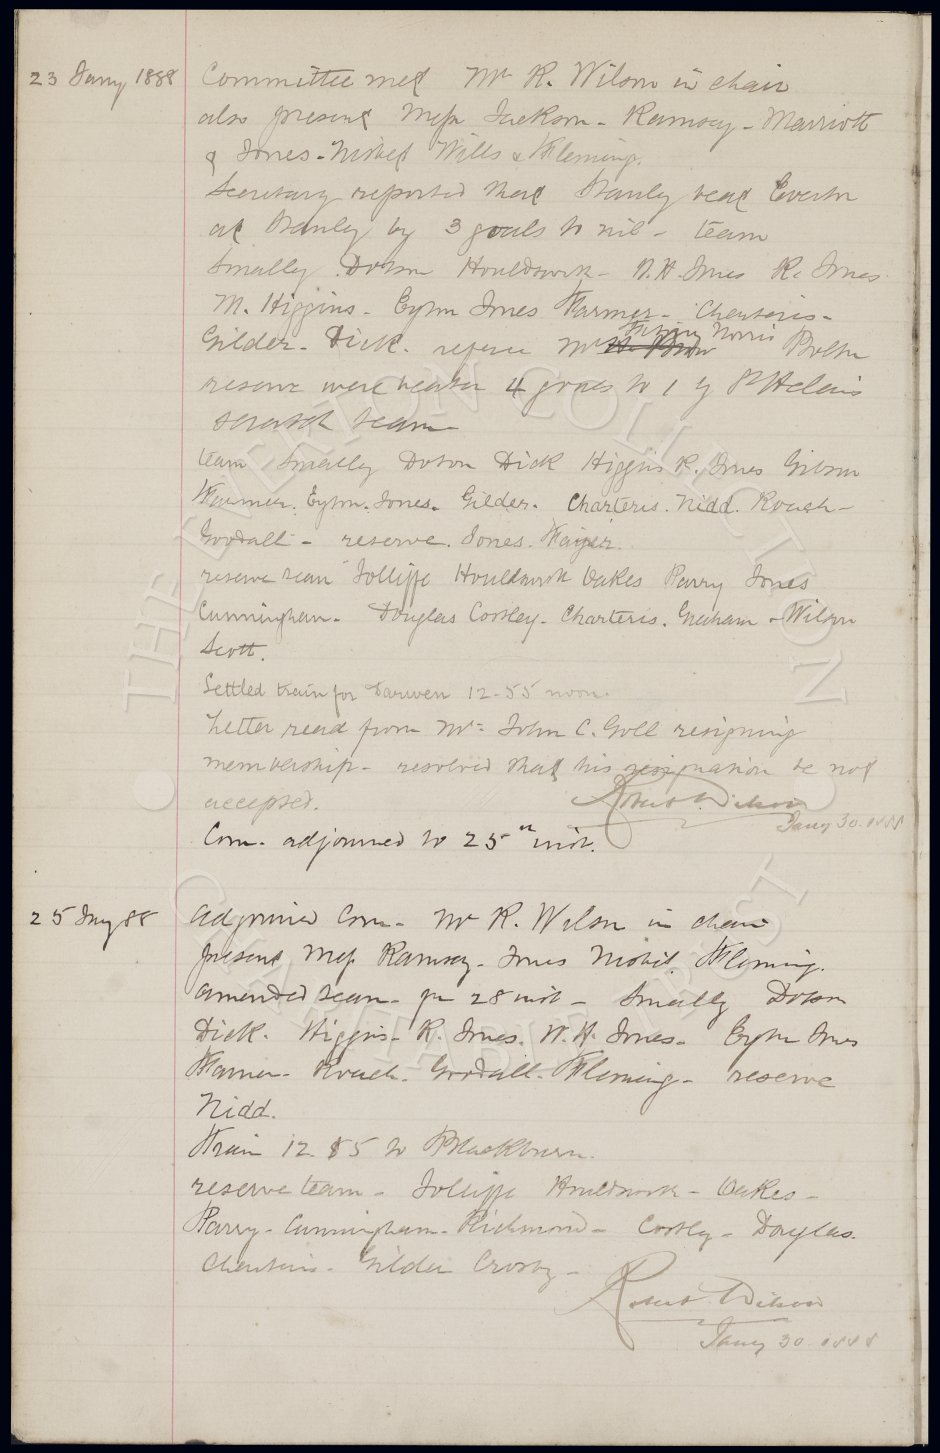 23 Jany 1888 Committee met Mr R. Wilson in chair
also present Messrs Jackson - Ramsay - Marriott
& Jones - Nisbet Wills & Fleming.
Secretary reported that Stanley beat Everton
at Stanley by 3 goals to nil - team
Smalley Dobson Houldsworth - W.H. Jones R. Jones
M. Higgins - Eyton Jones Farmer - Charteris -
Gilder - Dick. referee Mr Norris Bolton
reserve were beaten 4 goals to 1 by St Helens
scratch team
team Smalley Dobson Dick Higgins R. Jones Gibson
Farmer. Eyton-Jones. Gilder. Charteris. Nidd. Roach -
Goodall - reserve. Jones.
reserve team Jolliffe Houldsworth Oakes Parry Jones
Cunningham - Douglas Costley - Charteris. Graham - Wilson
Scott.
Settled train for Darwen 12-55 noon.
Letter read from Mr John C. Goll resigning
membership - resolved that his resignation be not
accepted. Robert Wilson
Jany 30. 1888
Com. adjourned to 25th inst.
25 Jny 88 Adjourned Com - Mr R. Wilson in chair
present Messrs Ramsay - Jones Nisbet Fleming.
amended team - for 28 inst - Smalley Dobson
Dick. Higgins - R. Jones. W.H. Jones - Eyton Jones
Farmer - Roach. Goodall - Fleming - reserve
Nidd.
Train 12 55 to Blackburn.
reserve team - Jolliffe Houldsworth - Oakes -
Parry - Cunningham - Richmond - Costley - Douglas.
Charteris - Gilder Crosby -
Robert Wilson
Jany 30 1888
THE EVERTON COLLECTION
CHARITABLE TRUST